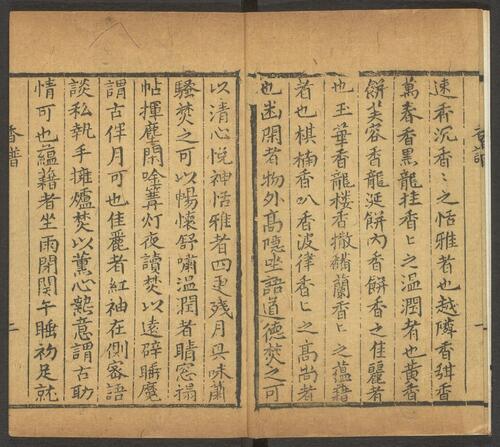 速香沉香〻之恬雅者也越隣香甜香
萬春香黑龍挂香〻之温潤者也黄香
餅芙蓉香龍涎餅內香餅香之佳麗者
也玉華香龍楼香撒䪥蘭香〻之蘊籍
者也棋楠香叭香波律香〻之髙尚者
也幽閑者物外髙隐坐語道德焚之可
以清心悅神恬雅者四更残月興味蕭
騷焚之可以暢懷舒嘯温潤者晴窓搨
帖揮塵閑唫篝灯夜讀焚以遠辟睡魔
謂古伴月可也佳麗者紅袖在側密語
談私執手擁爐焚以薰心熱意謂古助
情可也蘊籍者坐雨閉関午睡初足就
香譜
二